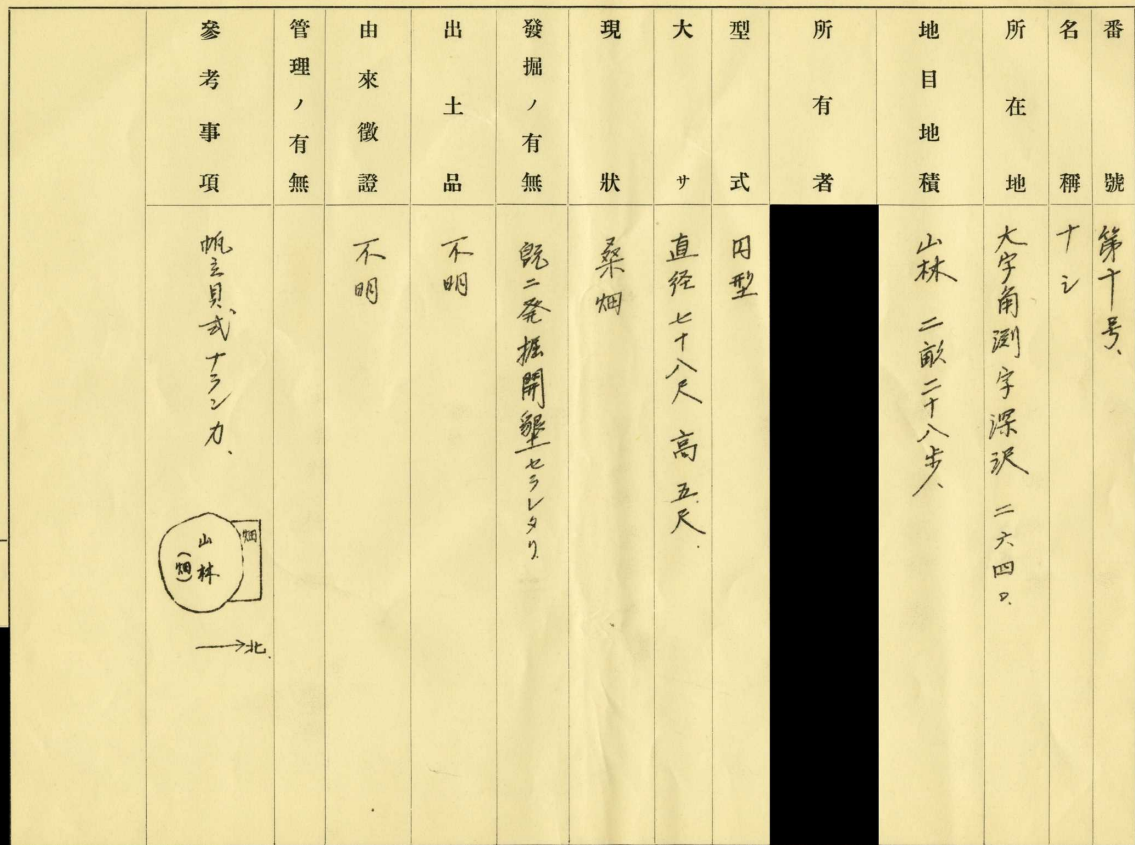 番號 第十号、
名稱 ナシ
所在地 大字角渕字深沢 二六四〇.
地目地積 山林 二畝二十八歩、
所有者
型式 円型
大サ 直径七十八尺 高五尺.
現狀 桑畑
發掘ノ有無 既ニ発掘開墾セラレタリ
出土品 不明
由來徵證 不明
管理ノ有無
參考事項 帆立貝式ナランカ、
畑
山林
(畑)
→北.